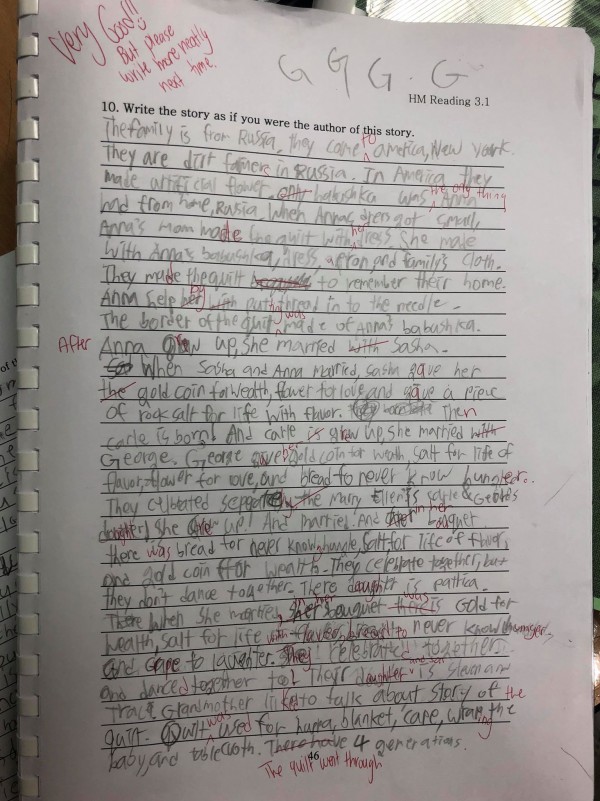 Very Good!!
But please
write more neatly
next time.
G G G . G
HM Reading 3.1
10. Write the story as if you were the author of this story.
The family is from Russia, they came to america, New york.
They are dirt famers in Russia. In America they
made artificial flower. only babushka was the only thing Anna
had from home, Rusia. When Anna's dres got small,
Anna's mom made the quilt with her dress. She made
with Anna's babushka, dress, apron and family's cloth.
They made the quilt to remember their home.
Anna help by with putting thread in to the needle.
The border of the quilt was made of Anna's babushka.
After Anna grew up, she married with Sasha.
When Sasha and Anna married, sasha gave her
the gold coin for wealth, flower for love, and gave a piece
of rock salt for life with flavor. Then
carle is born! And carle is grew up, she married with
George. George gave her gold coin for wealth, salt for life of
flavor, flower for love, and bread to never know hunger.
They celibated seperately the marry
daughter) she grew up! And married. And in her bouquet
there was bread for never know hungle, salt for life of flavor,
and gold coin ffor wealth. They celebrate together, but
they don't dance together. There daughtr is patrica.
There when she marries, her bouquet was there is Gold for
wealth, salt for life with flavor, bread to never know
and to laughter. They celebrated together
and danced together too! Their daughter is
Grandmother liked to talk about story of the
quilt. Quilt was used for huppa, blanket, cape, wraping the
baby, and table cloth. There have 4 generations.
46
The quilt went through